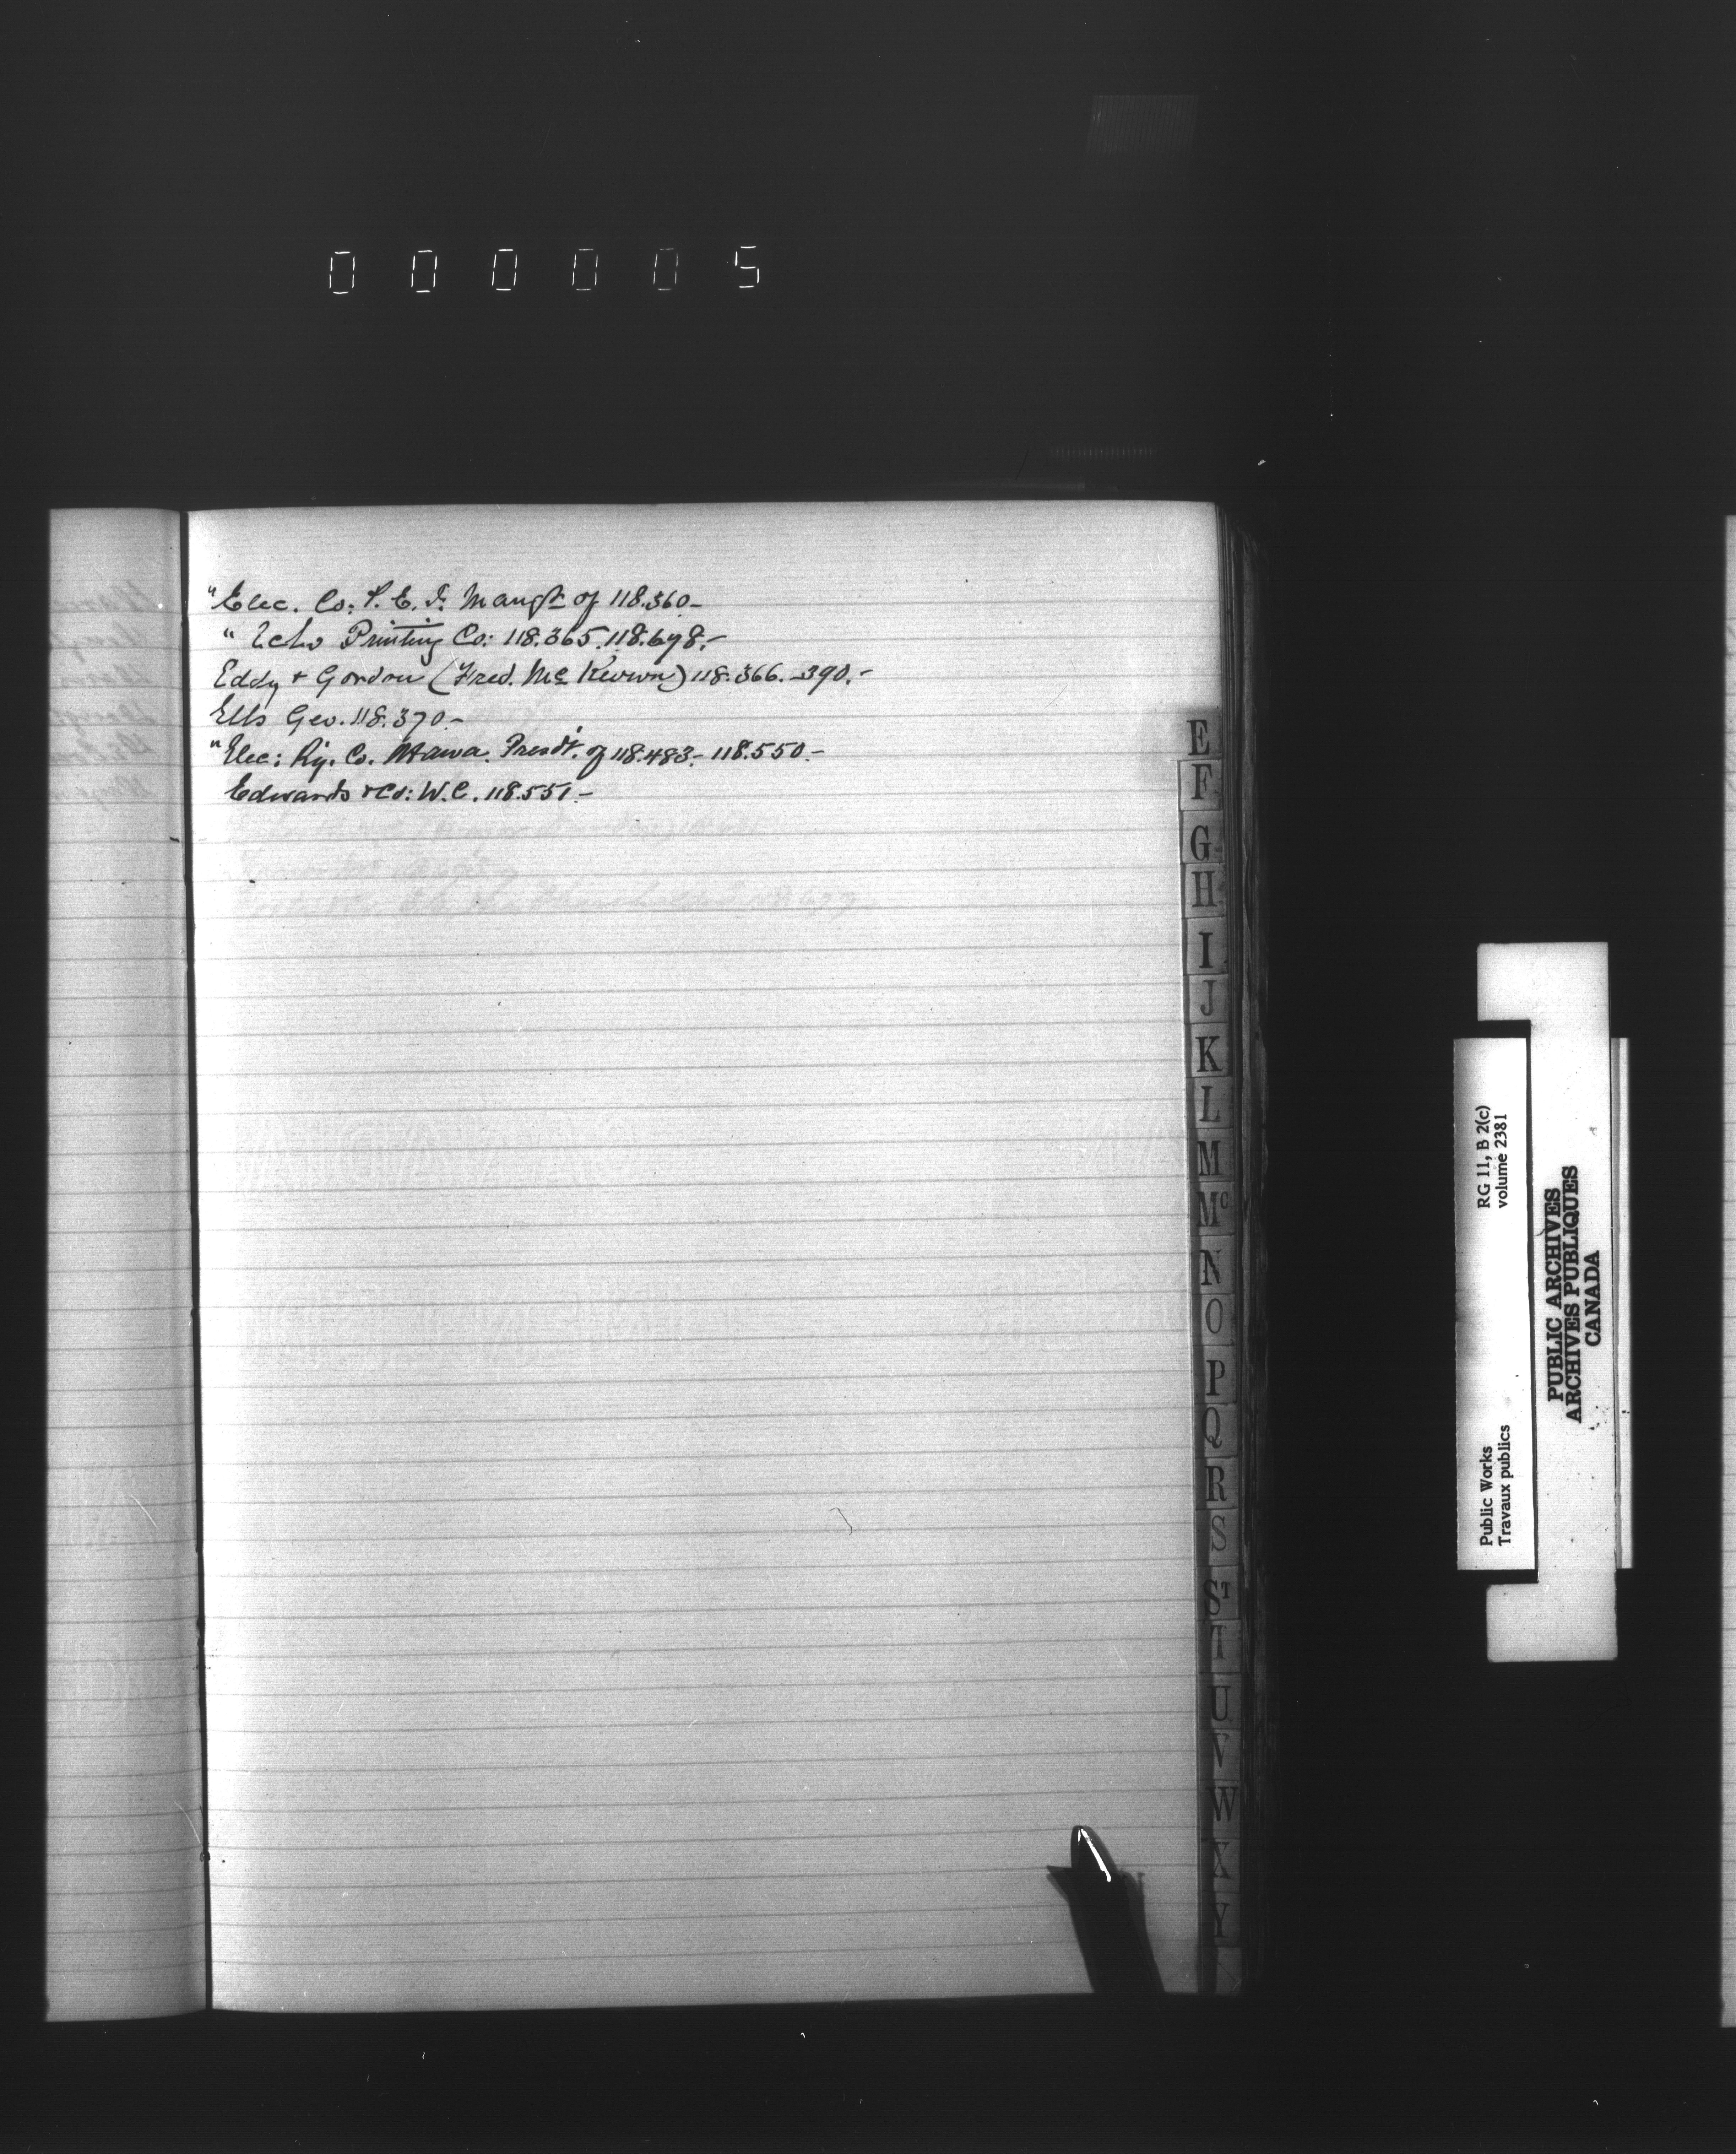 0 0 0 0 0 5
"Elec. Co: P. E. I. Mangr of 118.360-
" Echo Printing Co: 118.365. 118.698.-
Eddy + Gordon (Fred. Mc Kevwn) 118.366.-390.-
Ells Geo. 118.370-
"Elec: Ry. Co. Ottawa. Presdt. of 118.483.- 118.550.-
Edwards & Co: W. C. 118.551.-
E
F
G
H
I
J
K
L
M
Mc
N
O
P
Q
R
S
ST
T
U
V
W
X
Y
RG 11, B 2(c)
volume 2381
Public Works
Travaux publics
PUBLIC ARCHIVES
ARCHIVES PUBLIQUES
CANADA